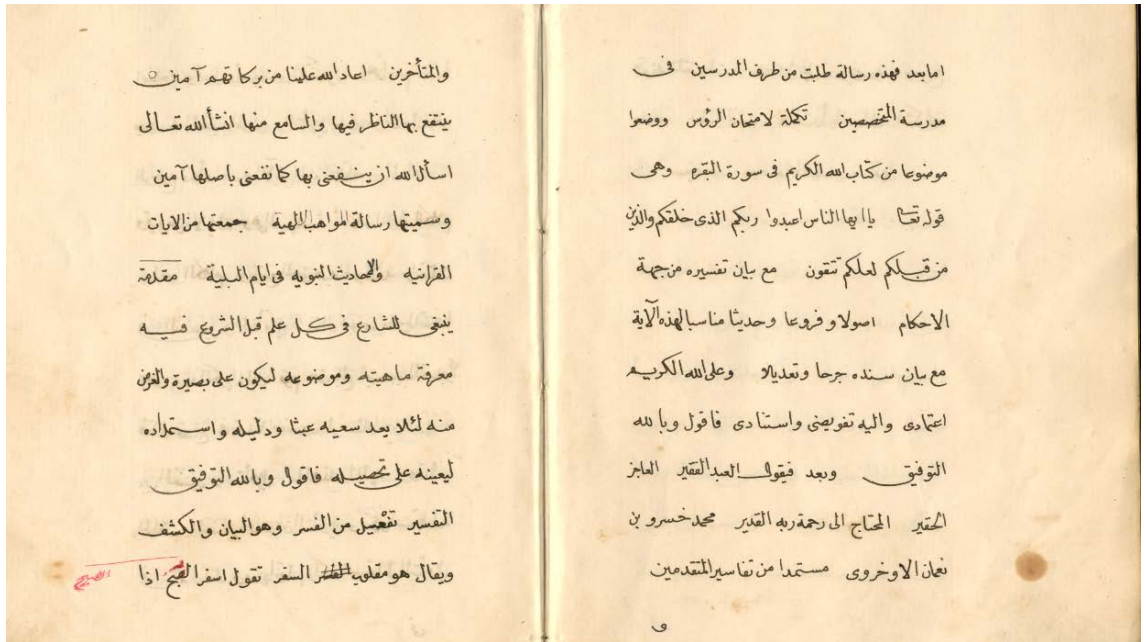 اما بعد فهذه رسالة طلبت من طرف المدرسين فى
مدرسة المتخصصين تكملة لامتحان الرؤس ووضعوا
موضوعا من كتاب الله الكريم فى سورة البقره وهى
قوله تعا ياايها الناس اعبدوا ربكم الذى خلقكم والذين
من قبلكم لعلكم تتقون مع بيان تفسيره من جهة
الاحكام اصولا و فروعا وحديثا مناسبا لهذه الآية
مع بيان سنده جرحا وتعديلا وعلى الله الكريم
اعتمادى واليه تفويضى واستنادى فاقول وبالله
التوفيق وبعد فيقول العبد الفقير العاجز
الحقير المحتاج الى رحمة ربه القدير محمد خسرو بن
نعمان الاوخروى مستمدا من تفاسير المتقدمين
و
والمتأخرين اعاد الله علينا من بركاتهم آمين
ينتفع بها الناظر فيها والسامع منها انشأ الله تعالى
اسأل الله ان ينفعنى بها كما نفعنى باصلها آمين
وسميتها رسالة المواهب اللهية جمعتها من الايات
القرانيه والاحاديث النبويه فى ايام البلية مقدمة
ينبغى للشارع فى كل علم قبل الشروع فيه
معرفة ماهيته وموضوعه ليكون على بصيرة والغرض
منه لئلا يعد سعيه عبثا ودليله واستمداده
ليعينه على تحصيله فاقول وبالله التوفيق
التفسير تفعيل من الفسر وهو البيان والكشف
ويقال هو مقلوب السفر تقول اسفر الصبح اذا
الصبح